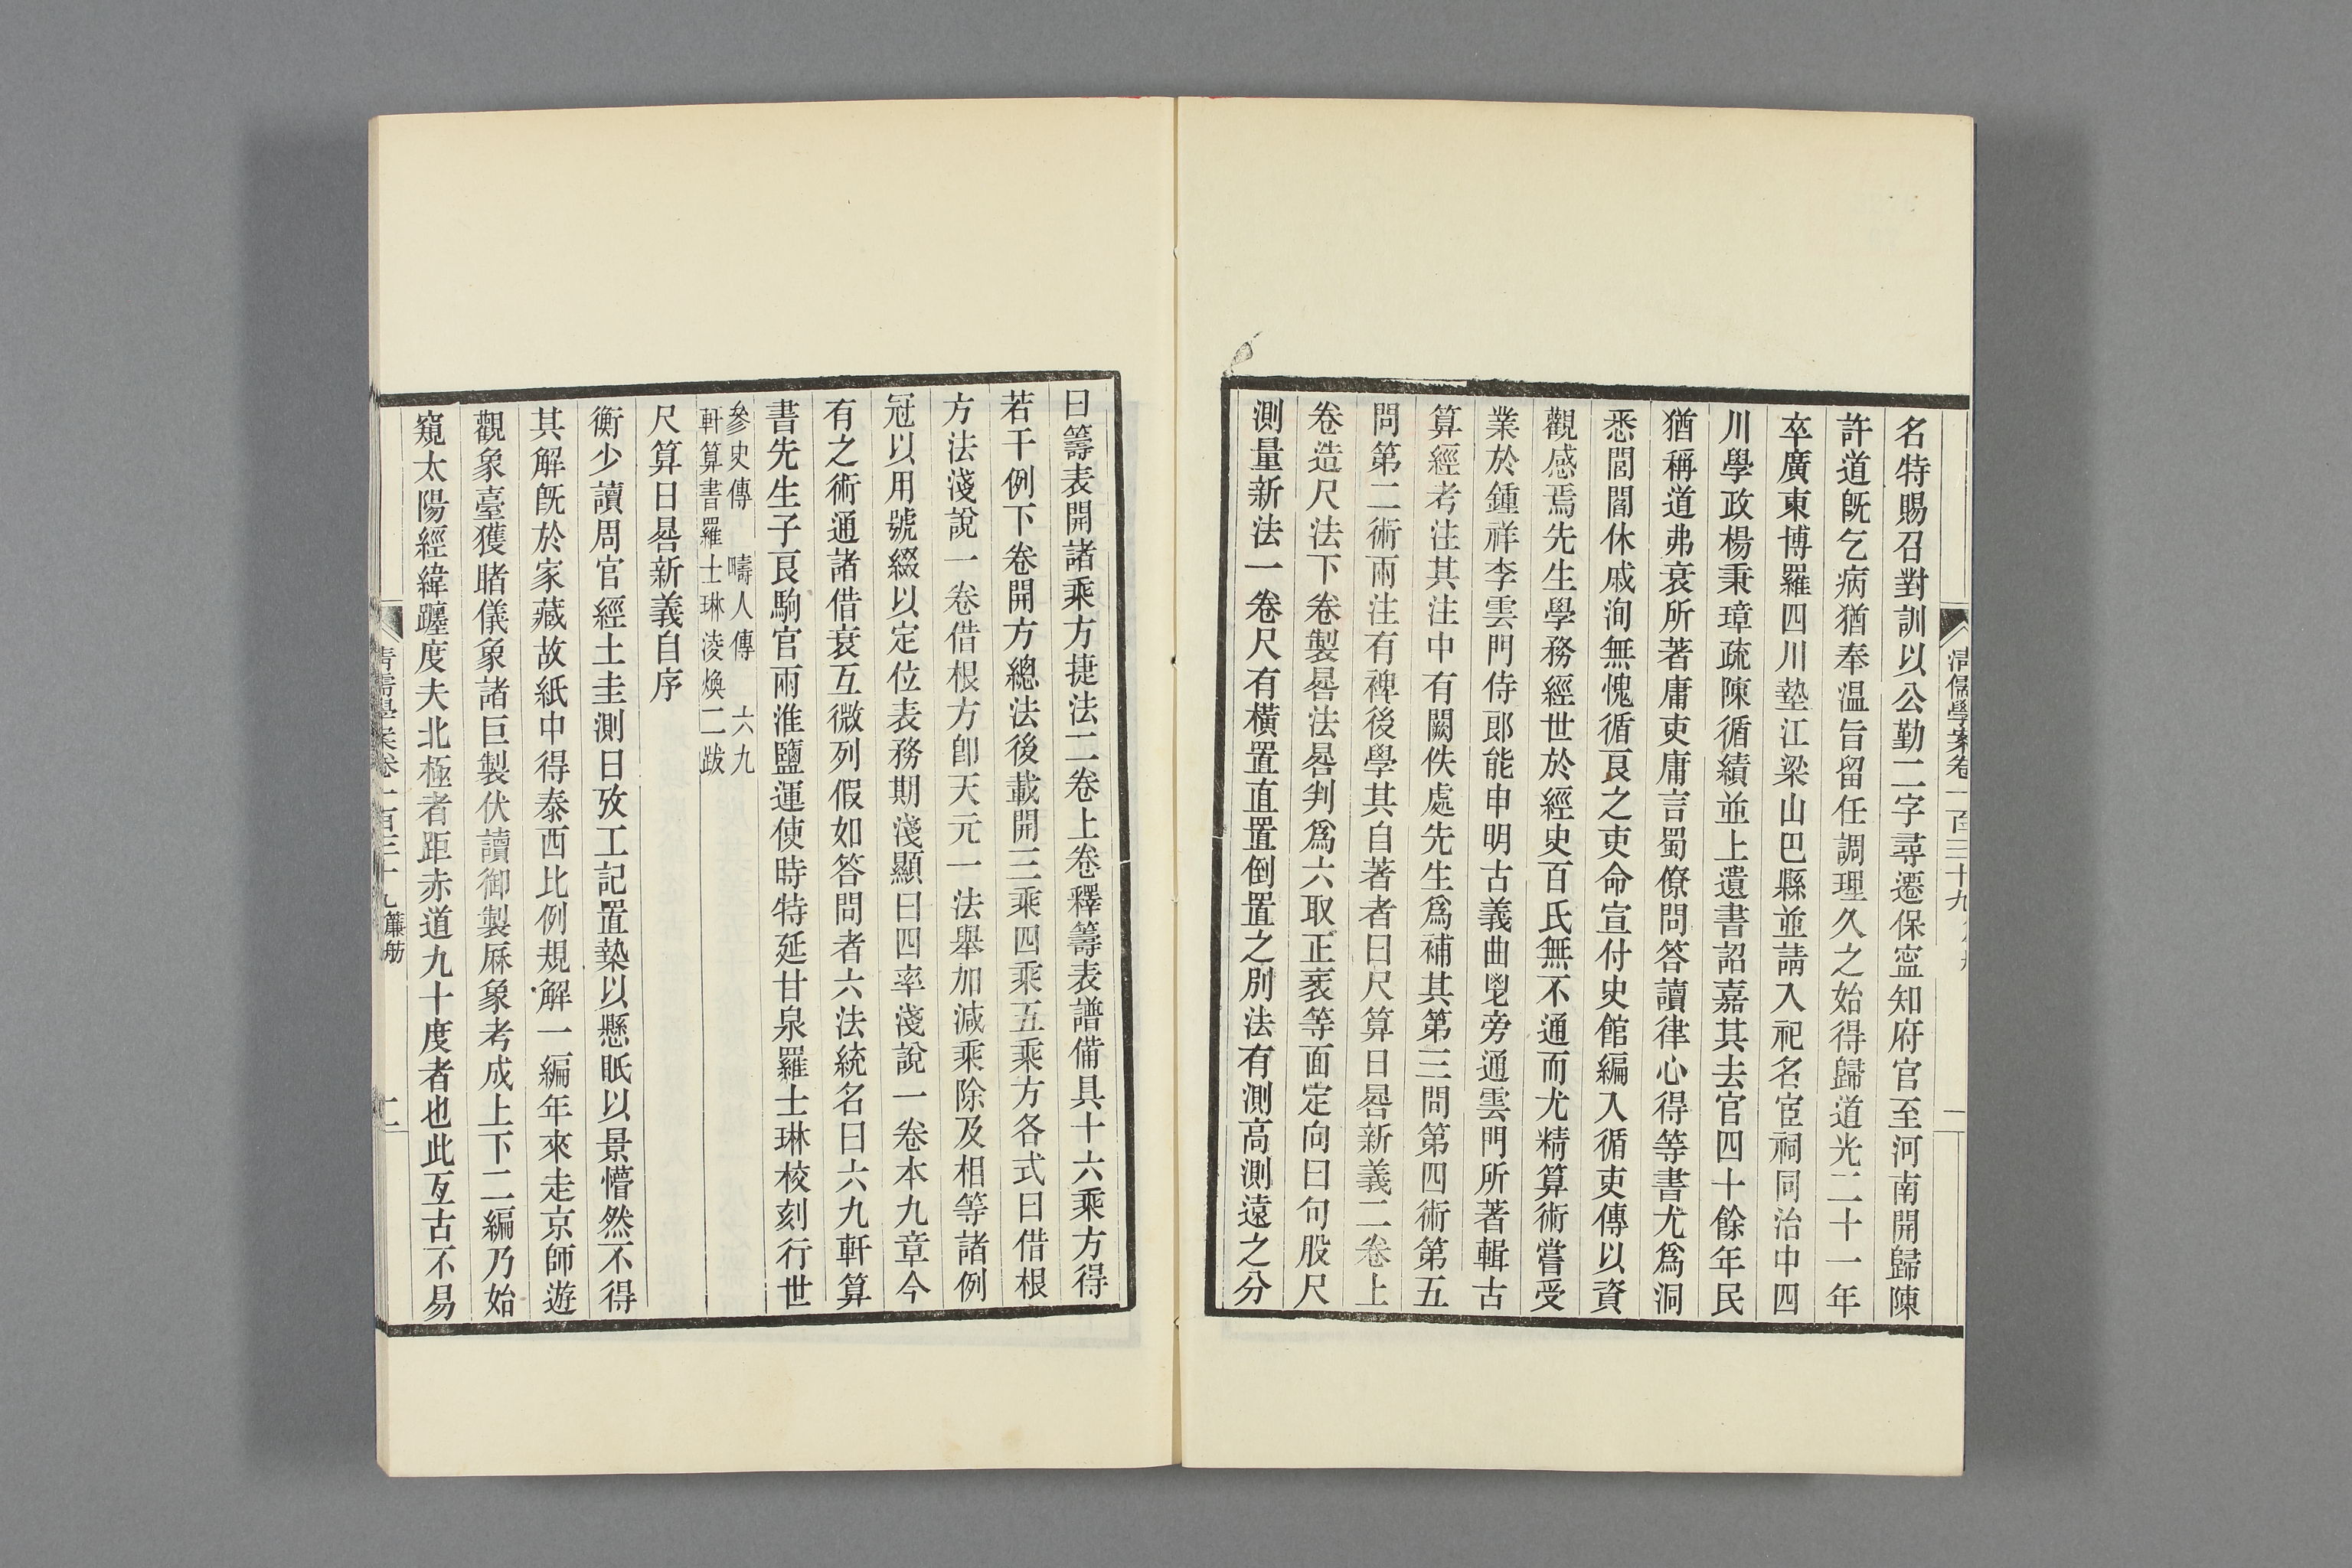 名特賜召對訓以公勤二字尋遷保寍知府官至河南開歸陳
許道旣乞病猶奉温旨留任調理久之始得歸道光二十一年
卒廣東博羅四川墊江梁山巴縣並請入祀名宦祠同治中四
川學政楊秉璋疏陳循績並上遺書詔嘉其去官四十餘年民
猶稱道弗衰所著庸吏庸言蜀僚問答讀律心得等書尤爲洞
悉閭閻休戚洵無愧循良之吏命宣付史館編入循吏傳以資
觀感焉先生學務經世於經史百氏無不通而尤精算術嘗受
業於鍾祥李雲門侍郎能申明古義曲鬯旁通雲門所著輯古
算經考注其注中有闕佚處先生爲補其第三問第四術第五
問第二術兩注有裨後學其自著者曰尺算日晷新義二卷上
卷造尺法下卷製晷法晷判爲六取正袤等面定向曰句股尺
測量新法一卷尺有橫置直置倒置之別法有測高測遠之分
曰籌表開諸乘方捷法二卷上卷釋籌表譜備具十六乘方得
若干例下卷開方總法後載開三乘四乘五乘方各式曰借根
方法淺說一卷借根方卽天元一法舉加減乘除及相等諸例
冠以用號綴以定位表務期淺顯曰四率淺說一卷本九章今
有之術通諸借衰互微列假如答問者六法統名曰六九軒算
書先生子良駒官兩淮鹽運使時特延甘泉羅士琳校刻行世
參史傳 疇人傳 六九
軒算書羅士琳淩煥二跋
尺算日晷新義自序
衡少讀周官經土圭測日攷工記置槷以懸眂以景懵然不得
其解旣於家藏故紙中得泰西比例規解一編年來走京師遊
觀象臺獲睹儀象諸巨製伏讀御製厤象考成上下二編乃始
窺太陽經緯躔度夫北極者距赤道九十度者也此亙古不易
清儒學案卷一百三十九
二